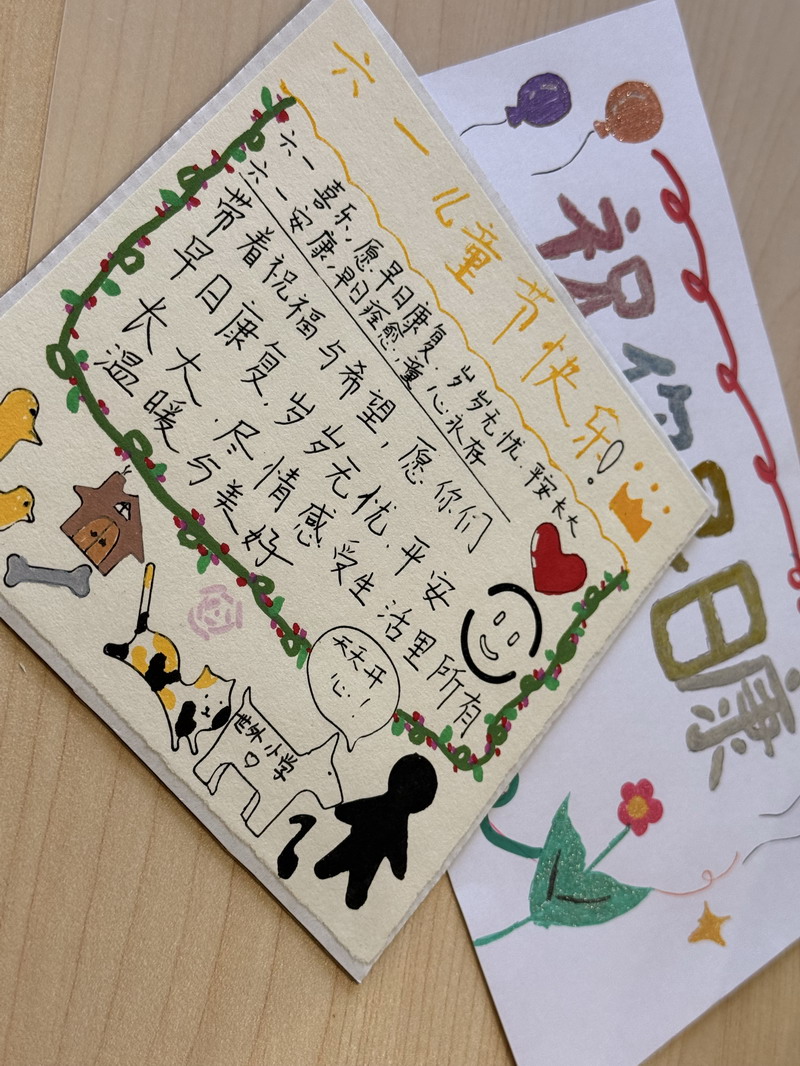 六一儿童节快乐!
六一喜乐,愿早日康复,岁岁无忧.平安长大
六一安康,早日痊愈,童心永存
带着祝福与希望,愿你们
早日康复.岁岁无忧.平安
长大.尽情感受生活里所有
温暖与美好
天天开
心!
世外小学
祝你早日康